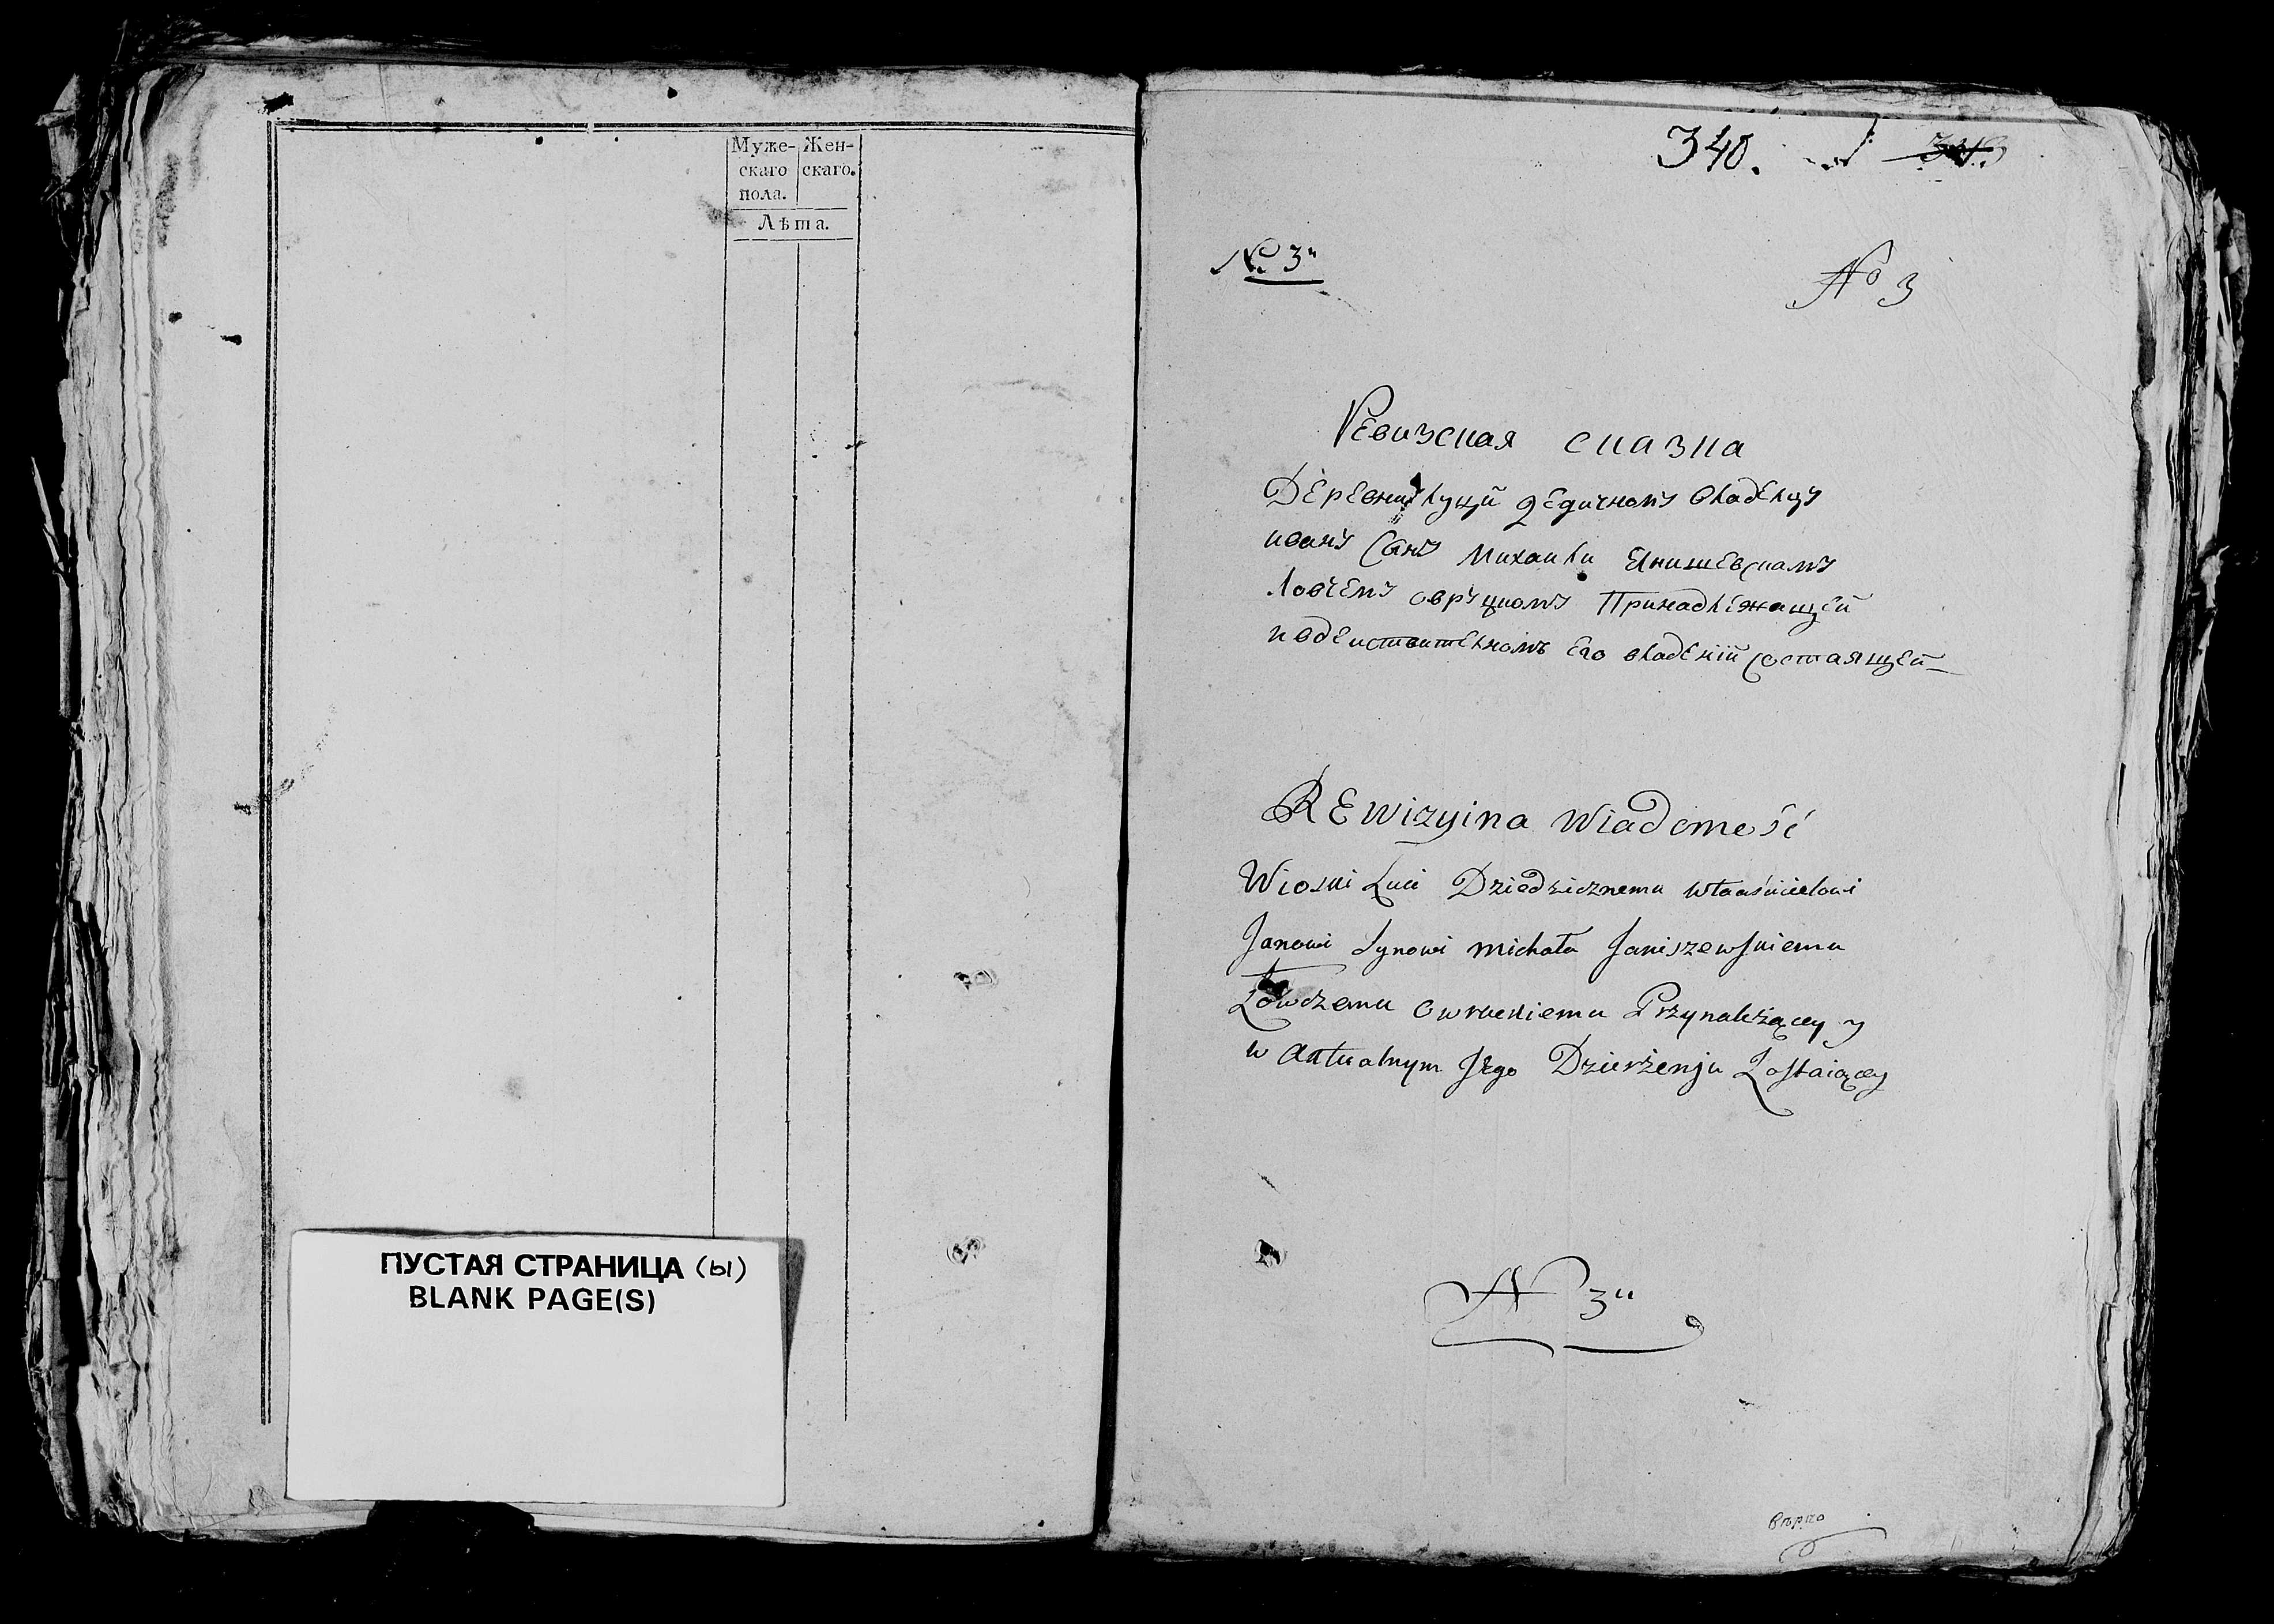 Муже- Жен-
скаго скаго.
пола.
Лѣта.
ПУСТАЯ СТРАНИЦА (ы)
BLANK PAGE(S)
340.
№ 3"
№ 3
Ревизская сказка
Деревни Луцй дедичному владелцу
ивану Сыну Михаили Янишевскому
Ловчему овруцкому Принадлежащей
и вдеиствителномъ его владении состаящей
REwizyina Wiadomość
Wioski Łuci Dziedzicznemu właaścicielowi
Janowi Synowi Michała Janiszewskiemu
Łowczemu Owruckiemu Przynależącey y
w Aktualnym Jego Dzierżenju Zostaiącey
N 3"
верно